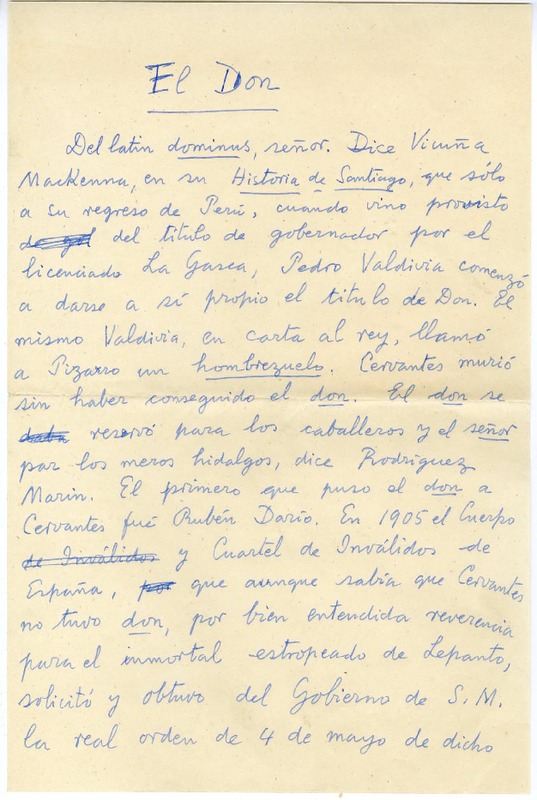 El Don
Del latin dominus, señor. Dice Vicuña
MacKenna, en su Historia de Santiago, que sólo
a su regreso de Perú, cuando vino provisto
del título de gobernador por el
licenciado La Gasca, Pedro Valdivia comenzó
a darse a sí propio el titulo de Don. El
mismo Valdivia, en carta al rey, llamó
a Pizarro un hombrezuelo. Cervantes murió
sin haber conseguido el don. El don se
reservó para los caballeros y el señor
par los meros hidalgos, dice Rodríguez
Marin. El primero que puso el don a
Cervantes fué Rubén Darío. En 1905 el Cuerpo
de Inválidos y Cuartel de Inválidos de
España, por que aunque sabía que Cervantes
no tuvo don, por bien entendida reverencia
para el inmortal estropeado de Lepanto,
solicitó y obtuvo del Gobierno de S. M.
la real orden de 4 de mayo de dicho